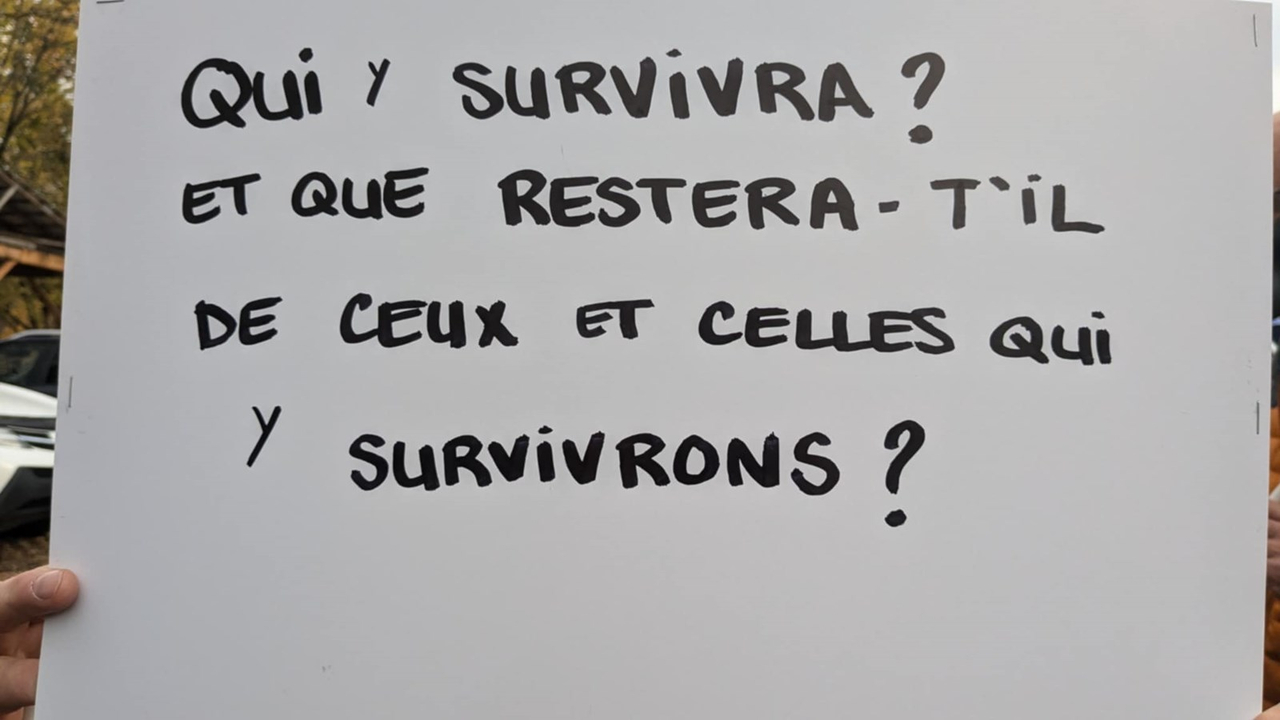 QUi Y SURViVRA ?
ET QUE RESTERA - T`iL
DE CEUX ET CELLES QUi
Y SURViVRONS ?